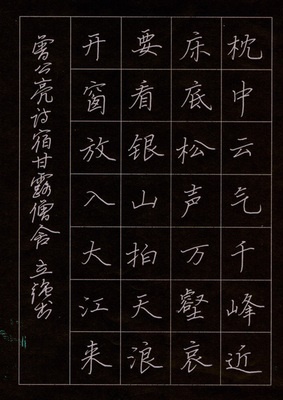 枕中云气千峰近
床底松声万壑哀
要看银山拍天浪
开窗放入大江来
曾公亮诗宿甘露僧舍 立强书